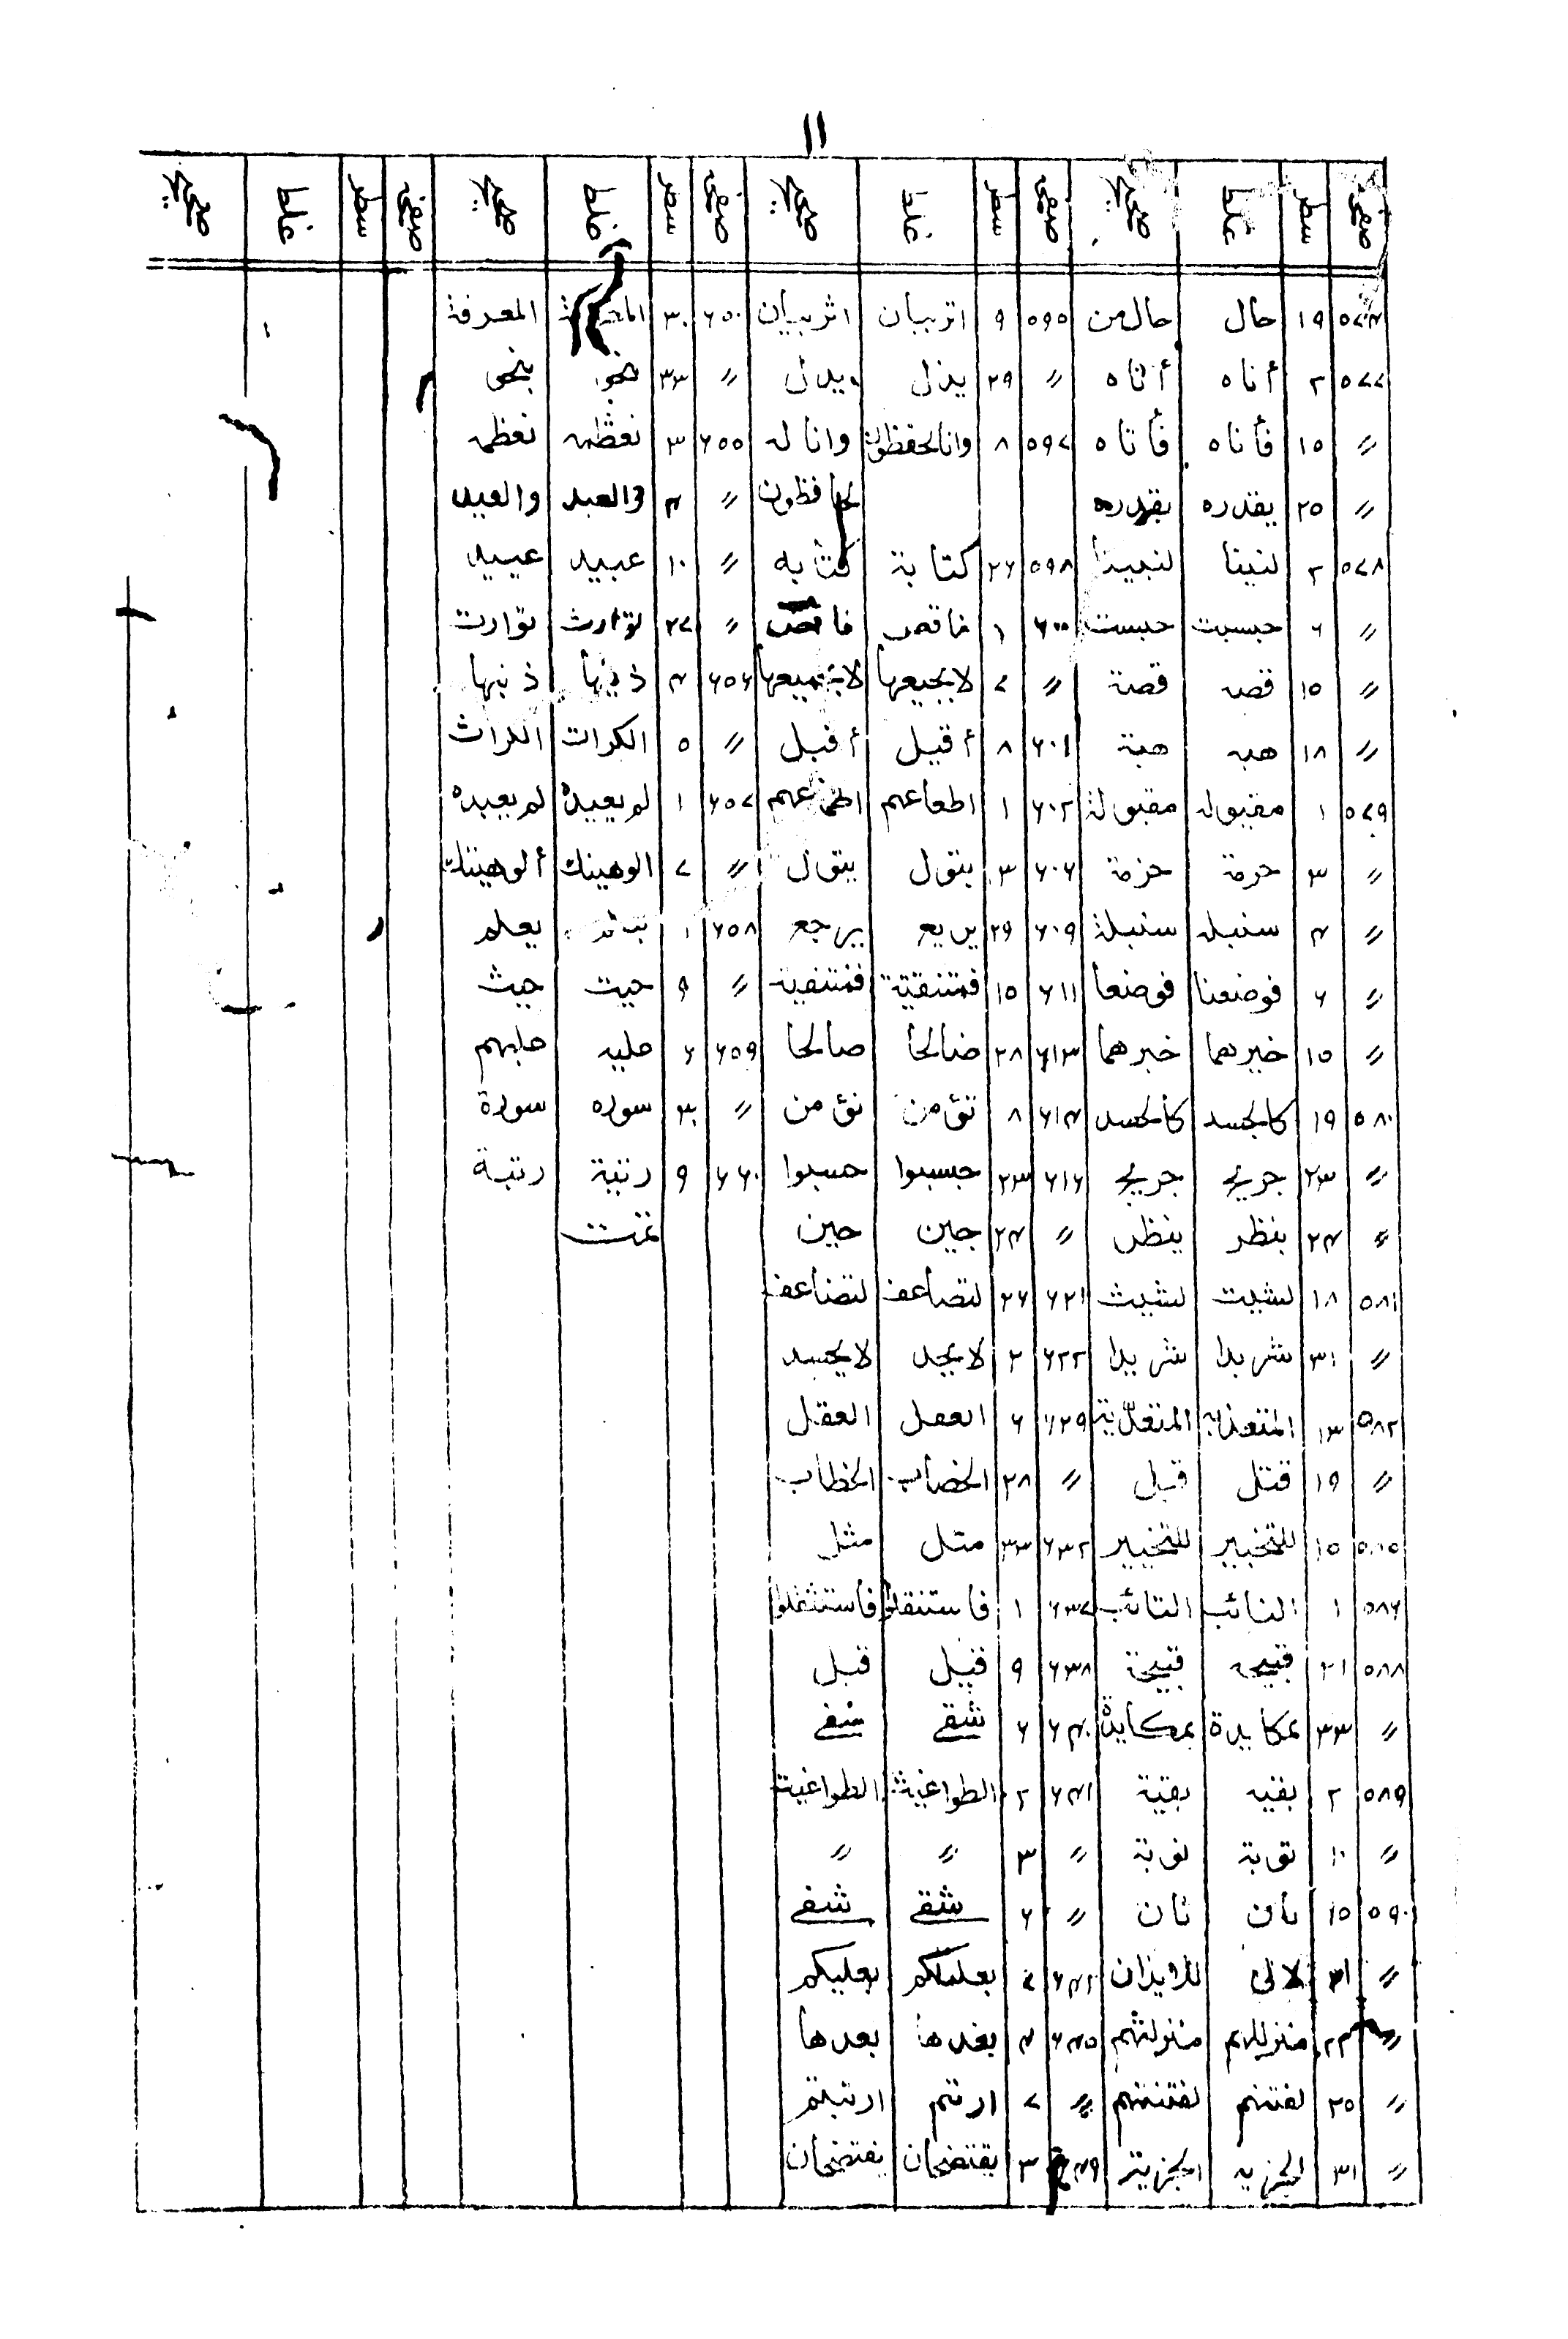 ١١
صفحة سطر غلط صحيح صفحة سطر غلط صحيح صفحة سطر غلط صحيح صفحة سطر غلط صحيح
٥٧٤ ١٩ حال حال من ٥٩٥ ٩ اتربيان اثربيان ٦٥٠ ٣٠ المعرفة
٥٧٧ ٢ أناه أتاه " ٢٩ يذل ويدل " ٣٣ نحو بنحو
" ١٥ فأناه فأتاه ٥٩٧ ٨ وانالحفظون وانا له ٦٥٥ ٣ نعظمه نعظمه
" ٢٥ يقدره بقدره لحافظون " ٤ والعبد والعبد
٥٧٨ ٢ لنبنا لنبيدا ٥٩٨ ٢٦ كتابة كتابه " ١٠ عبيد عبيد
" ٦ حبسبت حبست ٦٠٠ ١ فاقص فاقص " ٢٧ توارث توارت
" ١٥ قصه قصة " ٧ لا يجيعها لا بجميعها ٦٥٦ ٤ ذنبها ذنبها
" ١٨ هبه هبة ٦٠١ ٨ أقيل أقبل " ٥ الكرات الكراث
٥٧٩ ١ مقبوله مقبولة ٦٠٢ ١ اطعاعهم اطماعهم ٦٥٧ ١ لم يعيده لم يعبده
" ٣ حرمة حزمة ٦٠٦ ٣ بتول يتول " ٧ الوهينك ألوهيتك
" ٤ سنبله سنبلة ٦٠٩ ٢٩ يريع يرجع ٦٥٨ ١ يعلم
" ٦ فوضعنا فوضعا ٦١١ ١٥ فمتنقتة فمتنفية " ٩ حيت حيث
" ١٥ خيرهما خبرهما ٦١٣ ٢٨ ضالحا صالحا ٦٥٩ ٦ عليه عليهم
٥٨٠ ١٩ كالجسد كالحسد ٦١٤ ٨ تؤمن نؤمن " ٣٠ سوره سورة
" ٢٣ جريج جريج ٦١٦ ٢٣ جسبوا حسبوا ٦٦٠ ٩ رتبة رتبة
" ٢٤ بنظر ينظر " ٢٤ جين حين تمت
٥٨١ ١٨ لشيت لشيث ٦٢١ ٢٦ لتصاعف لتضاعف
" ٣١ شربدا شريدا ٦٢٢ ٢ لا يجد لا يحسد
٥٨٢ ١٣ المتعديه المتعدّية ٦٢٩ ٦ العمل العقل
" ١٩ قتل قبل " ٢٨ الخضاب الخطاب
٥٨٥ ١٥ للتخبير للتخيير ٦٣٢ ٣٣ متل مثل
٥٨٦ ١ النائب التائب ٦٣٧ ١ فاستنقلوا فاستثقلوا
٥٨٨ ٢١ قبيحه قبيحة ٦٣٨ ٩ قبيل قبل
" ٣٣ بمكايدة بمكايدة ٦٤٠ ٦ شقى شفى
٥٨٩ ٢ بقيه بقية ٦٤١ ٢ الطواغيث الطواغيت
" ١٠ توبة نوبة " ٣ " "
٥٩٠ ١٥ بان ثان " ٦ شقى شفى
" ٣١ لالى للايذان ٦٤٢ ٧ بعلمكم بعليكم
" ٢٣ منزللهم منزلتهم ٦٤٥ ٤ بغدها بعدها
" ٢٥ لفتنهم لفتنتهم " ٧ ارتم ارتبتم
" ٣١ الجزيه الجزية ٦٤٩ ٣ يقتضحان يفتضحان